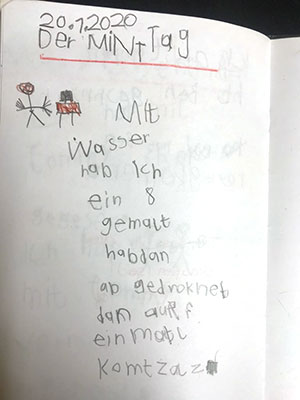 20.1.2020
Der MiNt Tag
Mit
Wasser
hab ich
ein 8
gemalt
habdan
ab gedroknet
dan auf
einmahl
komtzaz